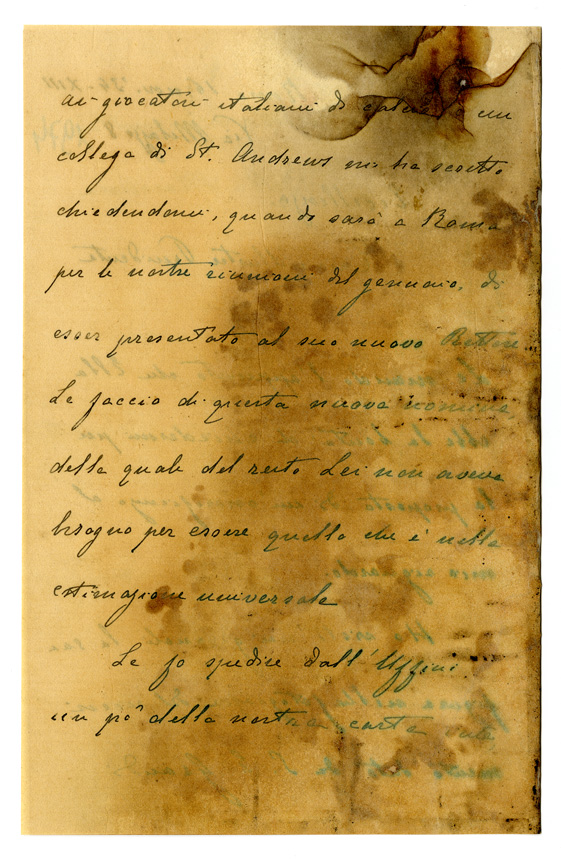 ai giocatori italiani di un
collega di St. Andrews mi ha scritto
chiedendomi, quando sarà a Roma
per le nostre riunioni del gennaio, di
esser presentato al suo nuovo Rettore.
Le faccio di questa nuova nomina
della quale del resto Lei non aveva
bisogno per essere quello che è nella
estimazione universale
Le fo spedire dall'
un pò della nostra carta